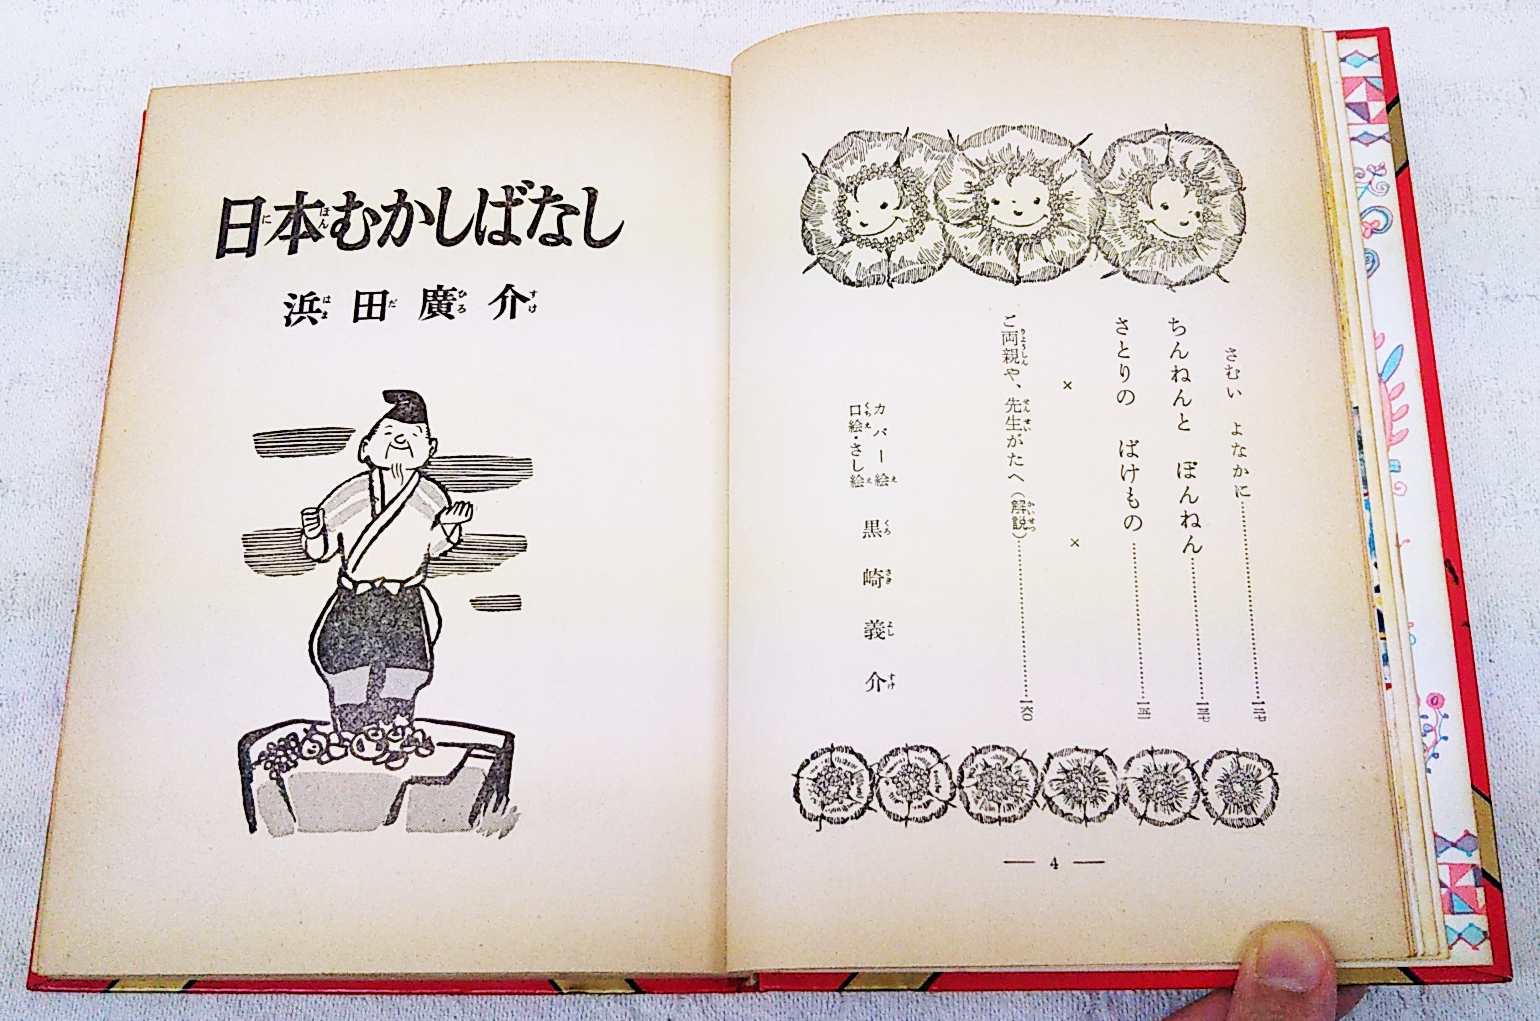 さむい よなかに……一二七
ちんねんと ぽんねん……一三七
さとりの ばけもの……一五一
× ×
ご両親や、先生がたへ(解説)……一六〇
カバー絵
口絵・さし絵
黒崎義介
— 4 —
日本むかしばなし
浜田廣介